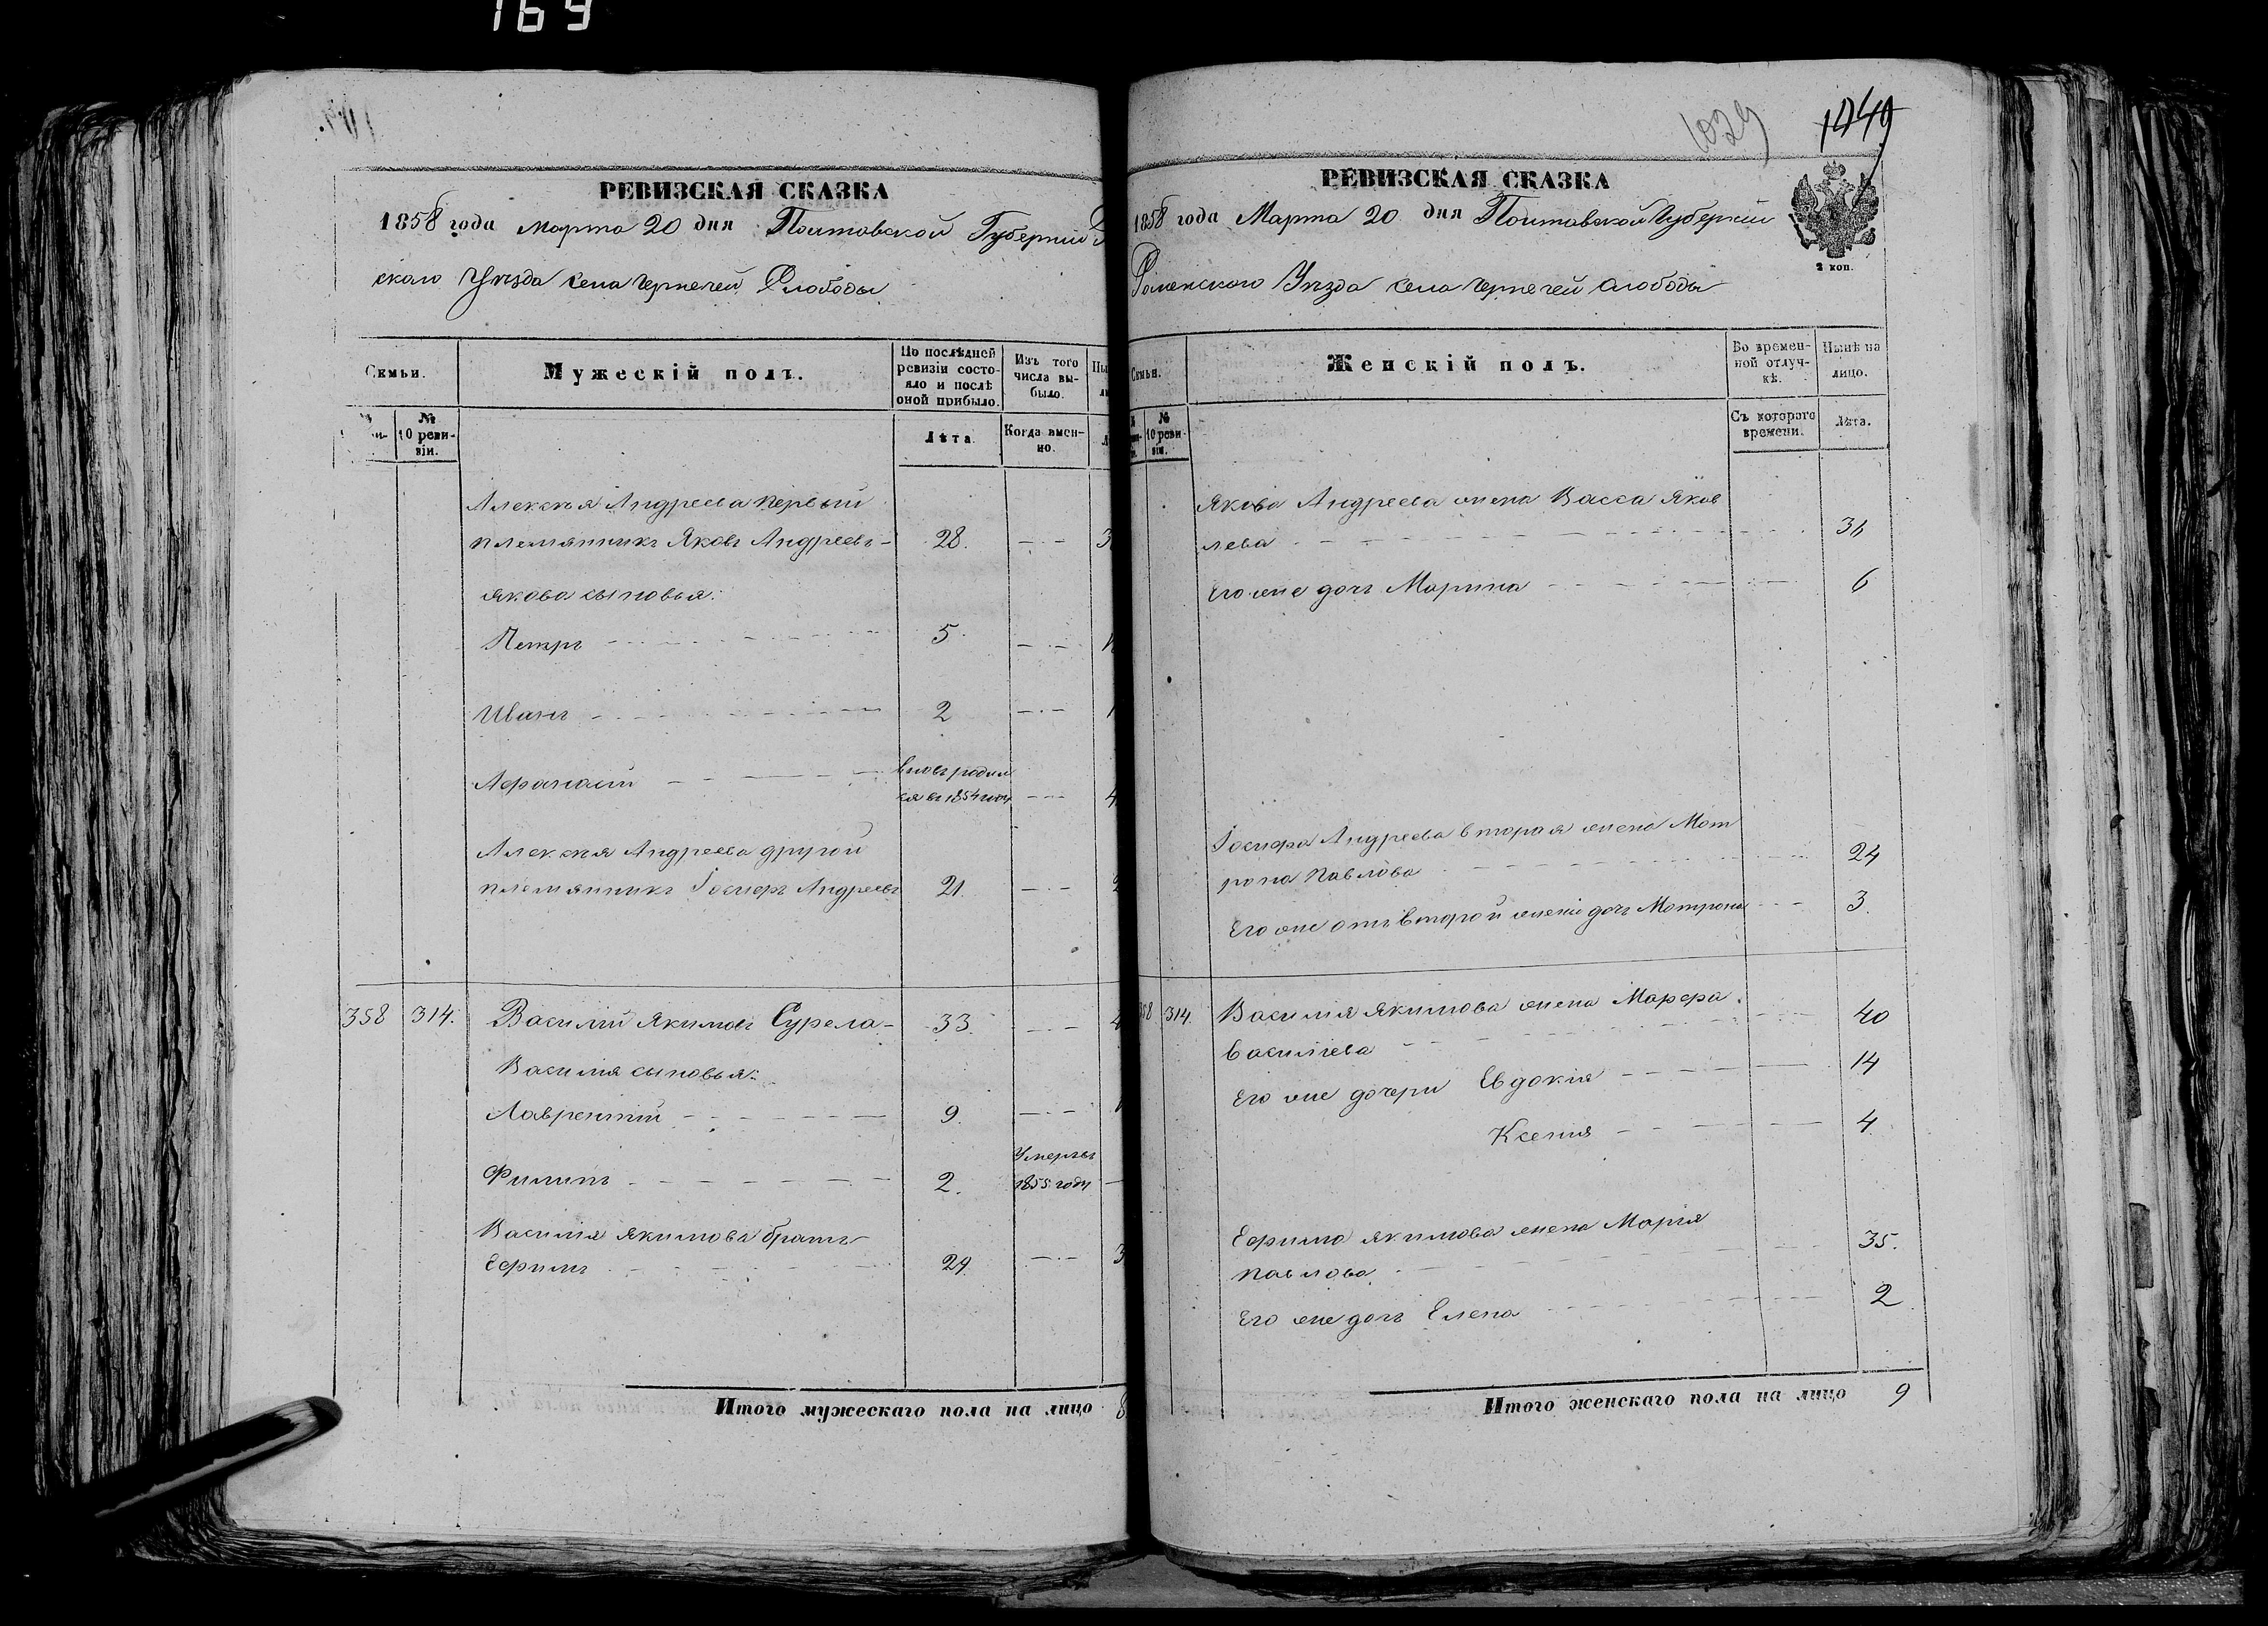 169
РЕВИЗСКАЯ СКАЗКА
1858 года Марта 20 дня Полтавской Губерніи
скаго Уѣзда села Чернечей Слободы
Семьи.
Мужескій полъ.
По послѣдней ревизіи состояло и послѣ оной прибыло.
Изъ того числа выбыло.
№ 10 ревизіи.
Лѣта.
Когда именно.
Алексѣя Андреева первый
племянникъ Яковъ Андреевъ 28.
Якова сыновья:
Петръ 5.
Иванъ 2
Афанасій вновь родил
ся въ 1854 году 4
Алексѣя Андреева другой
племянникъ Іосифъ Андреевъ 21.
358 314. Василій Якимовъ Сурела 33.
Василія сыновья:
Лаврентій 9.
Филипъ 2. Умеръ въ
1855 году
Василія Якимова братъ
Ефимъ 29.
Итого мужескаго пола на лицо 8
1029
1049
РЕВИЗСКАЯ СКАЗКА
1858 года Марта 20 дня Полтавской Губерніи
Роменскаго Уѣзда села Чернечей слободы
2 коп.
Семьи.
Женскій полъ.
Во временной отлучкѣ.
Нынѣ на лицо.
№ 10 ревизіи.
Съ котораго времени.
Лѣта.
Якова Андреева жена Васса Яков
лева 31
Его же дочь Марина 6
Іосифа Андреева вторая жена Мат
рона Павлова 24
Его же отъ второй жены дочь Матрона 3.
358 314. Василія Якимова жена Марфа
Васильева 40
Его же дочери Евдокія 14
Ксенія 4.
Ефима Якимова жена Марія
Павлова 35.
Его же дочь Елена 2
Итого женскаго пола на лицо 9